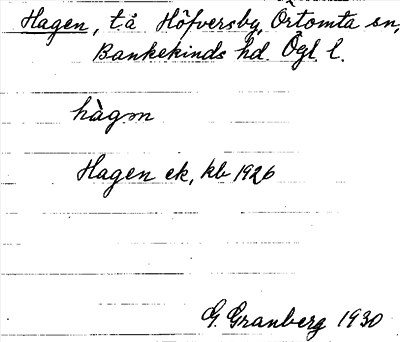 Hagen, t.å Höfversby, Örtomta sn,
Bankekinds hd. Ögl. l.
hàgm
Hagen ek, kb 1926
G. Granberg 1930